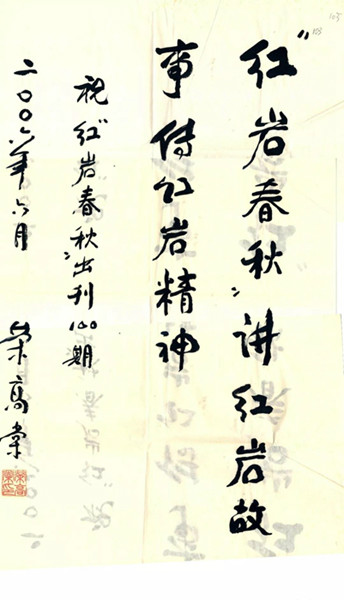 “红岩春秋”讲红岩故
事传红岩精神
祝“红岩春秋”出刊100期
二〇〇六年六月
荣高棠